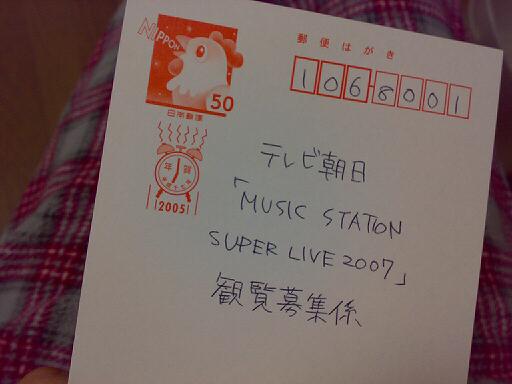 NIPPON
50
日本郵便
年賀
2005
郵便はがき
1068001
テレビ朝日
「MUSIC STATION
SUPER LIVE 2007」
観覧募集係